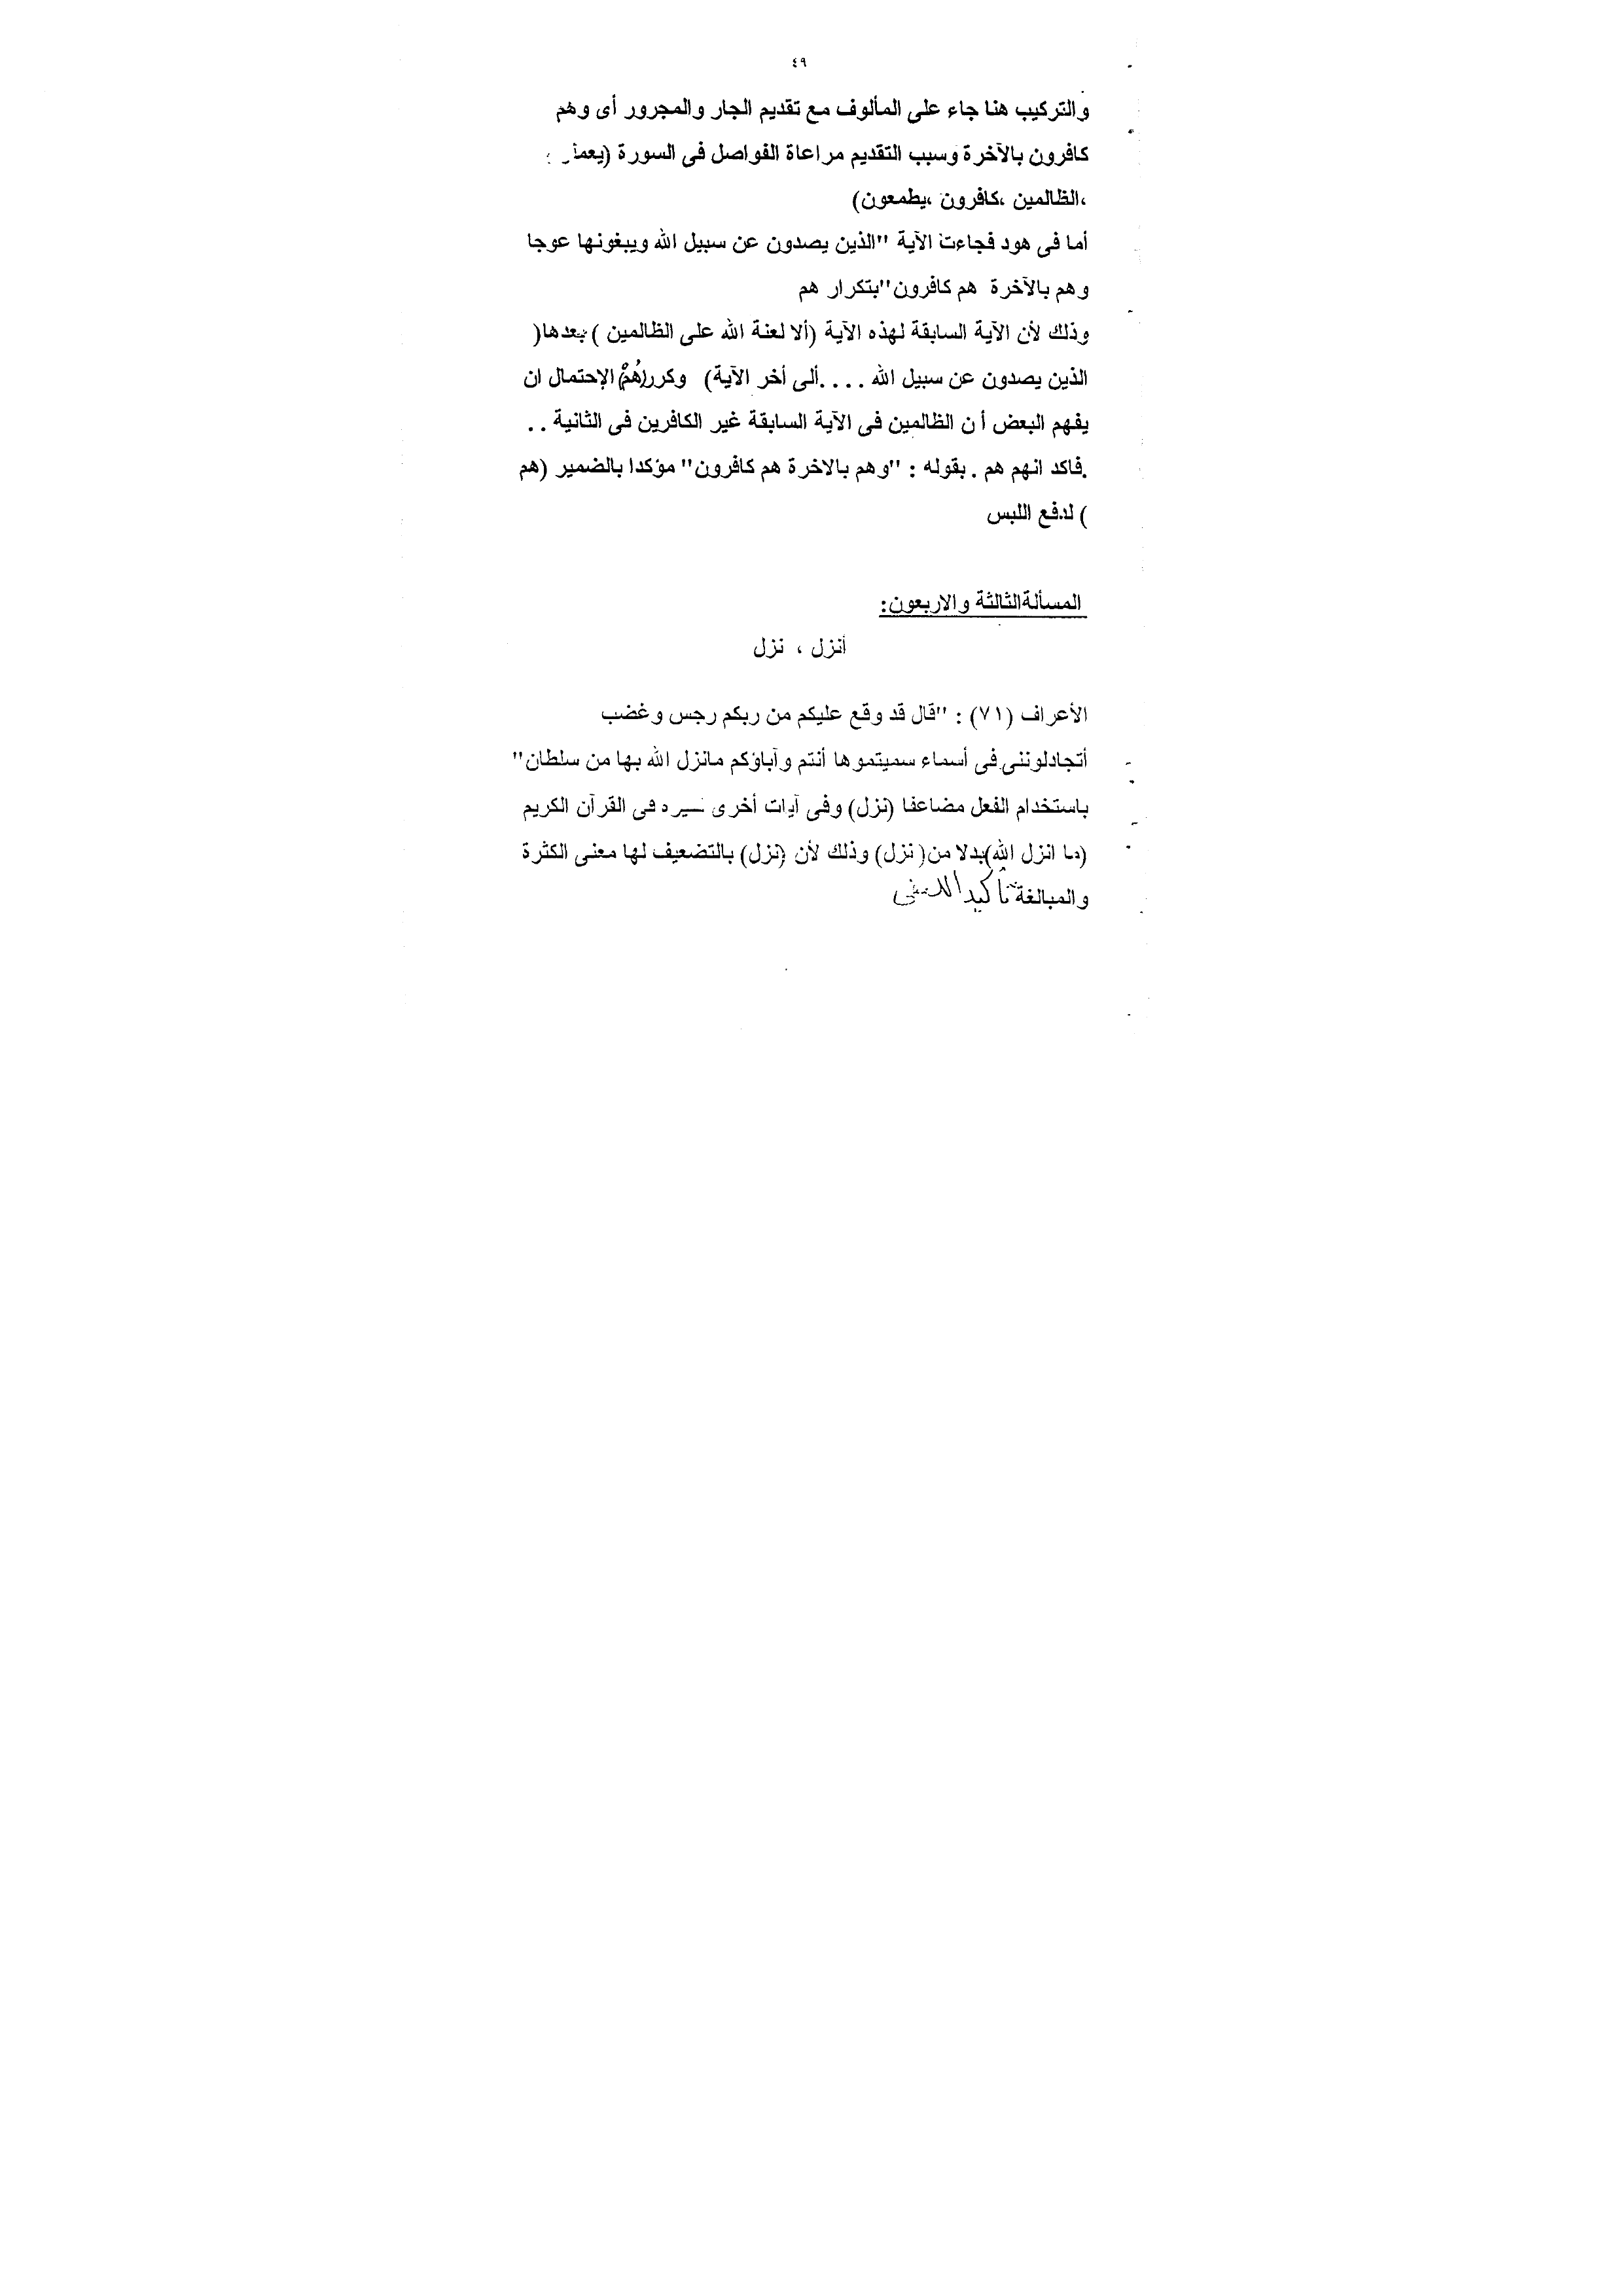 ٤٩
والتركيب هنا جاء على المألوف مع تقديم الجار والمجرور أى وهم
كافرون بالآخرة وسبب التقديم مراعاة الفواصل فى السورة (
،الظالمين ،كافرون ،يطمعون)
أما فى هود فجاءت الآية "الذين يصدون عن سبيل الله ويبغونها عوجا
وهم بالآخرة هم كافرون"بتكرار هم
وذلك لأن الآية السابقة لهذه الآية (ألا لعنة الله على الظالمين )بعدها(
الذين يصدون عن سبيل الله ....ألى أخر الآية) وكرر(هُمْ) الإحتمال ان
يفهم البعض أن الظالمين فى الآية السابقة غير الكافرين فى الثانية ..
.فاكد انهم هم . بقوله : "وهم بالاخرة هم كافرون" مؤكدا بالضمير (هم
) لدفع اللبس
المسألة الثالثة والاربعون:
أنزل ، نزل
الأعراف (٧١) : "قال قد وقع عليكم من ربكم رجس وغضب
أتجادلوننى فى أسماء سميتموها أنتم وآباؤكم مانزل الله بها من سلطان"
باستخدام الفعل مضاعفا (نزل) وفى آيات أخرى فى القرآن الكريم
(ما انزل الله)بدلا من( نزل) وذلك لأن (نزل) بالتضعيف لها معنى الكثرة
والمبالغة تأكيدا